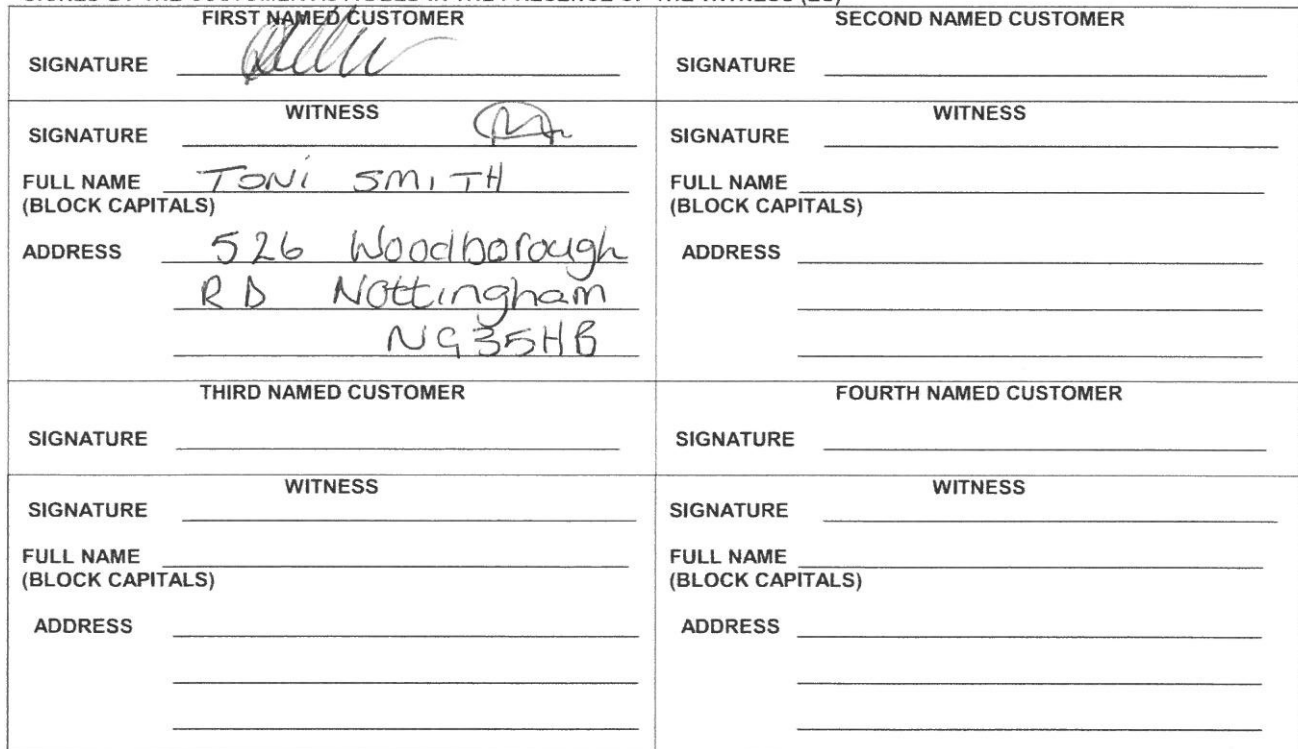 FIRST NAMED CUSTOMER
SIGNATURE
SECOND NAMED CUSTOMER
SIGNATURE
WITNESS
SIGNATURE
FULL NAME TONi SMITH
(BLOCK CAPITALS)
ADDRESS 526 Woodborough
RD Nottingham
NG35HB
WITNESS
SIGNATURE
FULL NAME
(BLOCK CAPITALS)
ADDRESS
THIRD NAMED CUSTOMER
SIGNATURE
FOURTH NAMED CUSTOMER
SIGNATURE
WITNESS
SIGNATURE
FULL NAME
(BLOCK CAPITALS)
ADDRESS
WITNESS
SIGNATURE
FULL NAME
(BLOCK CAPITALS)
ADDRESS